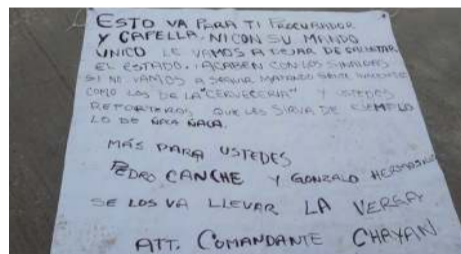 ESTO VA PARA TI PROCURADOR
Y CAPELLA. NI CON SU MANDO
UNICO LE VAMOS A DEJAR DE CALENTAR
EL ESTADO. ACABEN CON LOS
SI NO VAMOS A SEGUIR MATANDO GENTE INOCENTE
COMO LOS DE LA "CERVECERIA" Y USTEDES
REPORTEROS QUE LES SIRVA DE EJEMPLO
LO DE ÑACA ÑACA.
MÁS PARA USTEDES
PEDRO CANCHE Y GONZALO HERMOSILLO
SE LOS VA LLEVAR LA VERGA
ATT. COMANDANTE CHAYAN